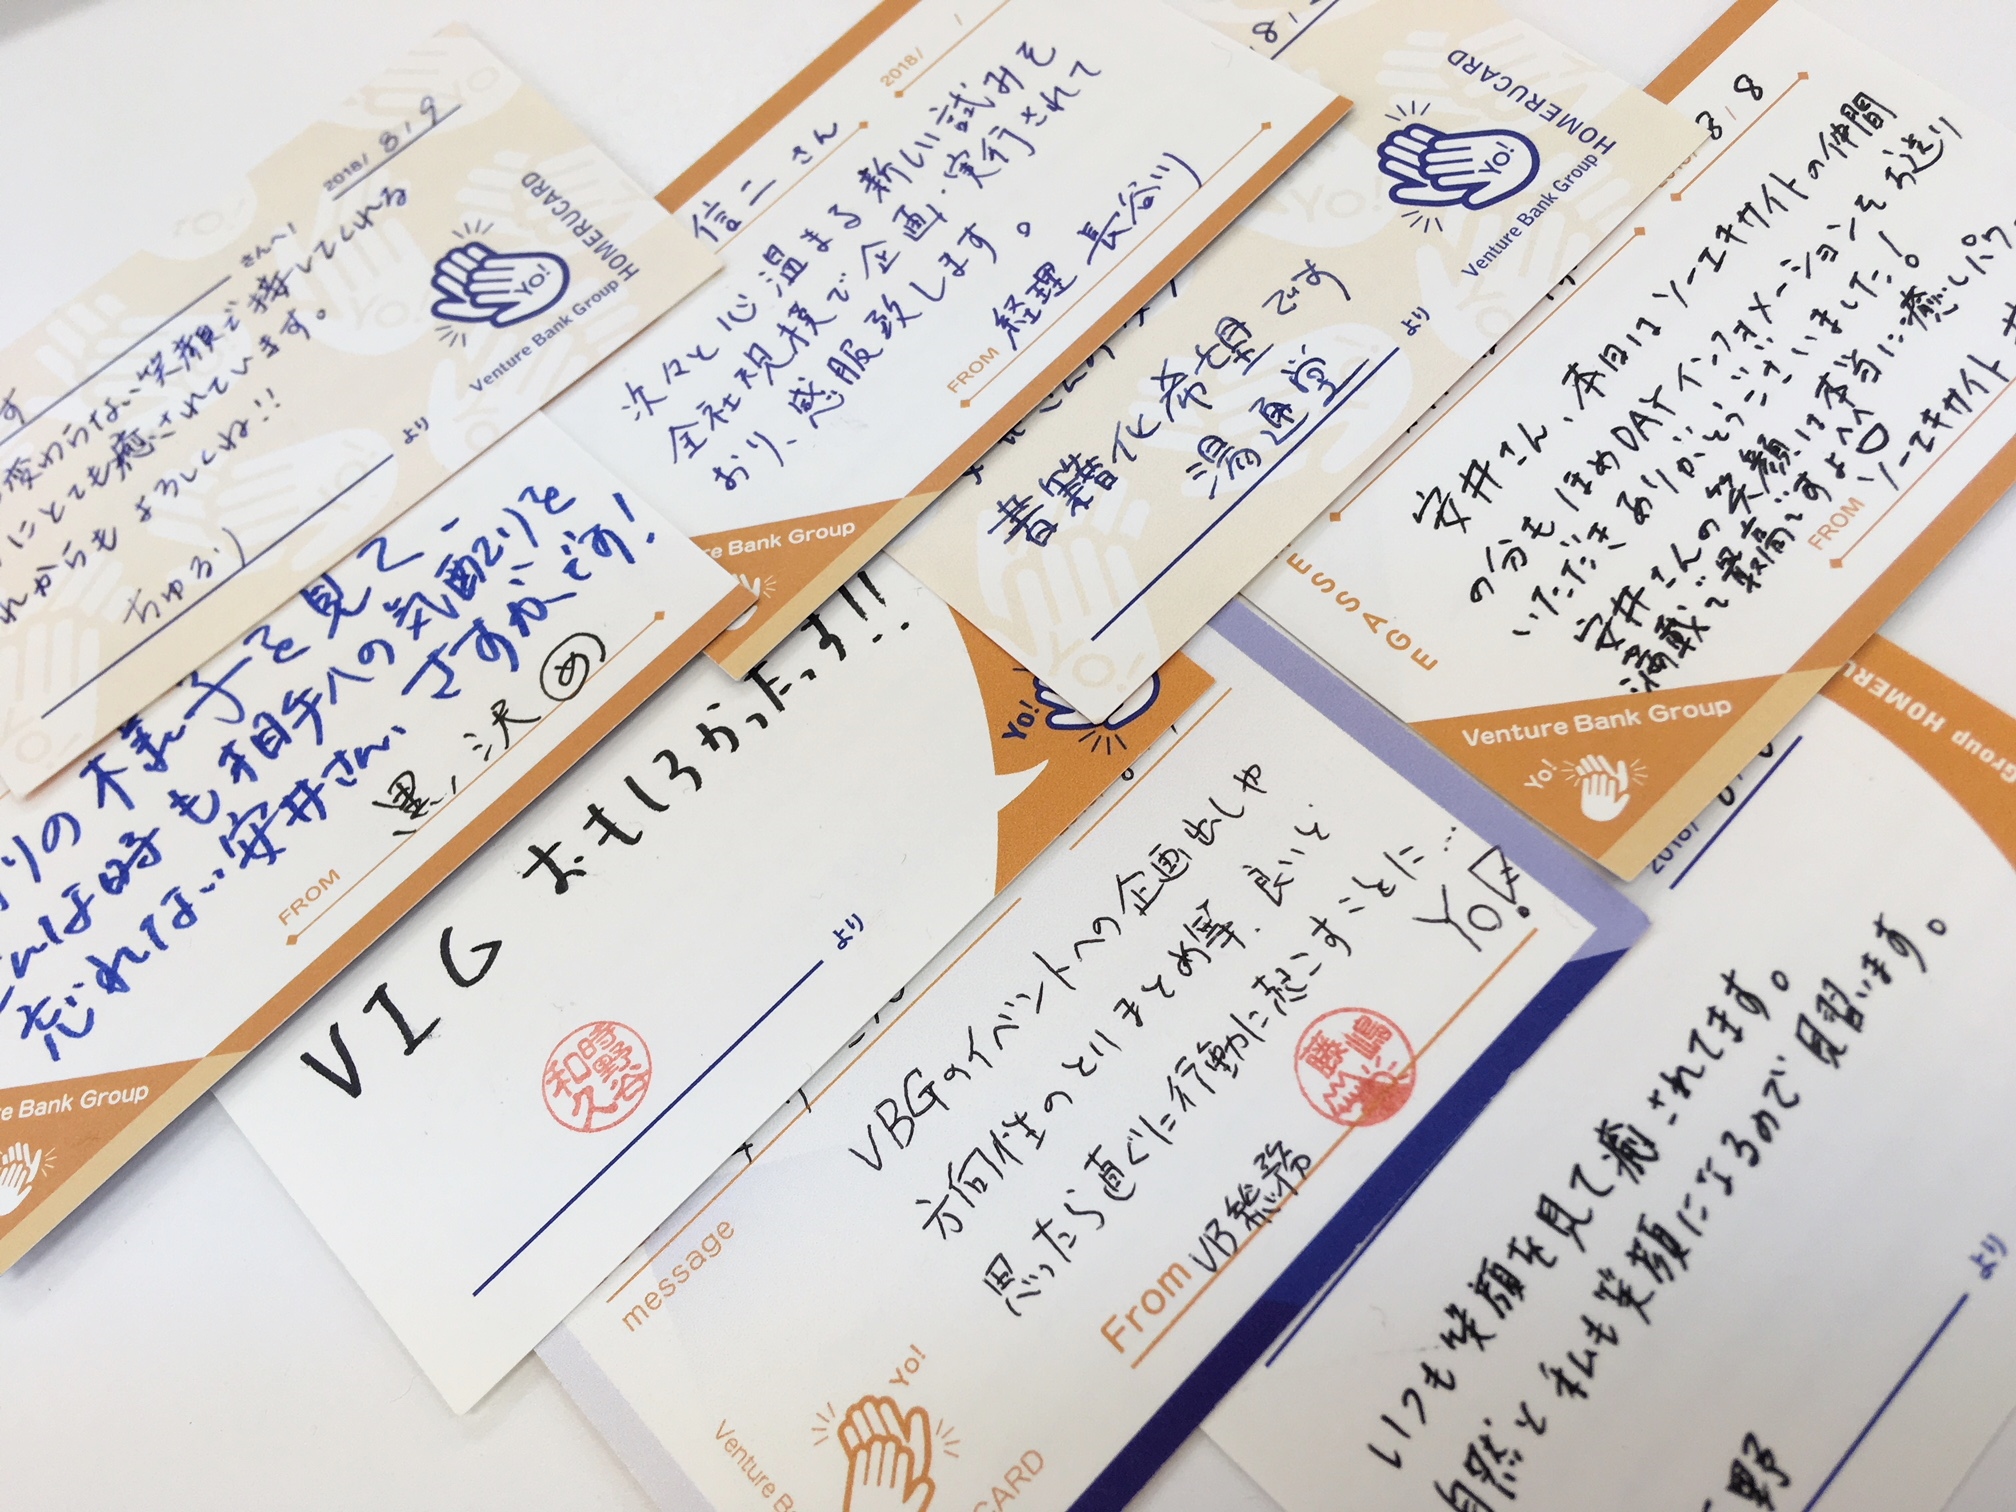 2018/ 8/9
さんへ!
変わらない笑顔で接してくれる
にとても癒されています。
れからも よろしくね!!
ちゅるり
より
YO!
HOMERUCARD
Venture Bank Group
2018/
信二 さん
次々と心温まる新しい試みを
全社規模で企画・実行されて
おり、感服致します。
FROM 経理 長谷川
re Bank Group
8/
YO!
HOMERUCARD
Venture Bank Group
書籍化希望です
湯通堂
より
8/8
安井さん、本日はソーエキサイトの仲間
の分もほめDAYインフォメーションをお送り
いただきありがとうございました!
安井さんの笑顔は本当に癒しパワー
満載で最高ですよ
FROM ソーエキサイト
ESSAGE
Venture Bank Group
Yo!
りの様子を見て
な時も相手への気配りを
忘れない安井さん、さすがです!
FROM 黒沢 め
re Bank Group
VIG おもしろかったっす!!
時野谷和久
より
Yo!
VBGのイベントへの企画出しや
方向性のとりまとめ等、良いと
思ったら直ぐに行動に起こすことに…
YO!
message
From VB総務
藤嶋
Yo!
Venture B
CARD
HOMERU
Group
2018/
いつも笑顔を見て癒されてます。
自然と私も笑顔になるので見習います。
野
より